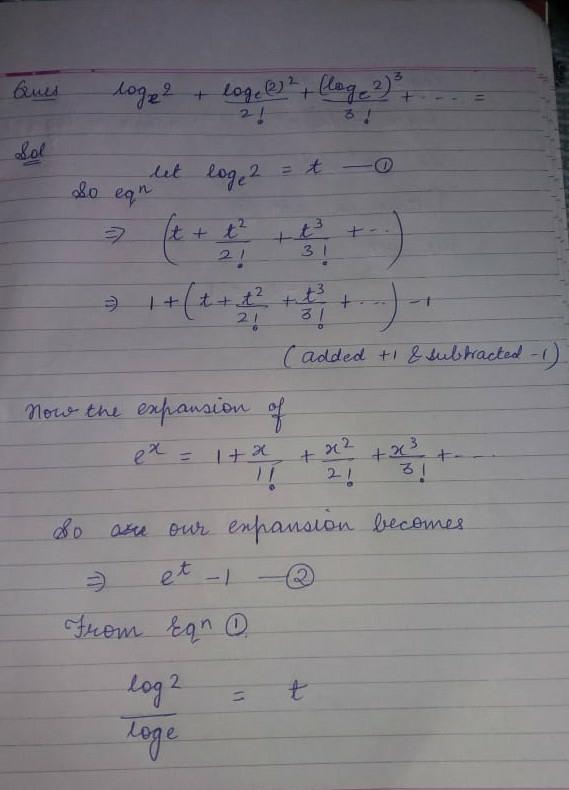 Ques logₑ2 + logₑ(2)²/2! + (logₑ2)³/3! + ---- =
Sol
let logₑ2 = t —①
So eqⁿ
⇒ (t + t²/2! + t³/3! + --)
⇒ 1+(t+t²/2! + t³/3! + ---) -1
(added +1 & subtracted -1)
Now the expansion of
eˣ = 1+x/1! + x²/2! + x³/3! + ---
So our expansion becomes
⇒ eᵗ -1 —②
From Eqⁿ ①
log2/loge = t